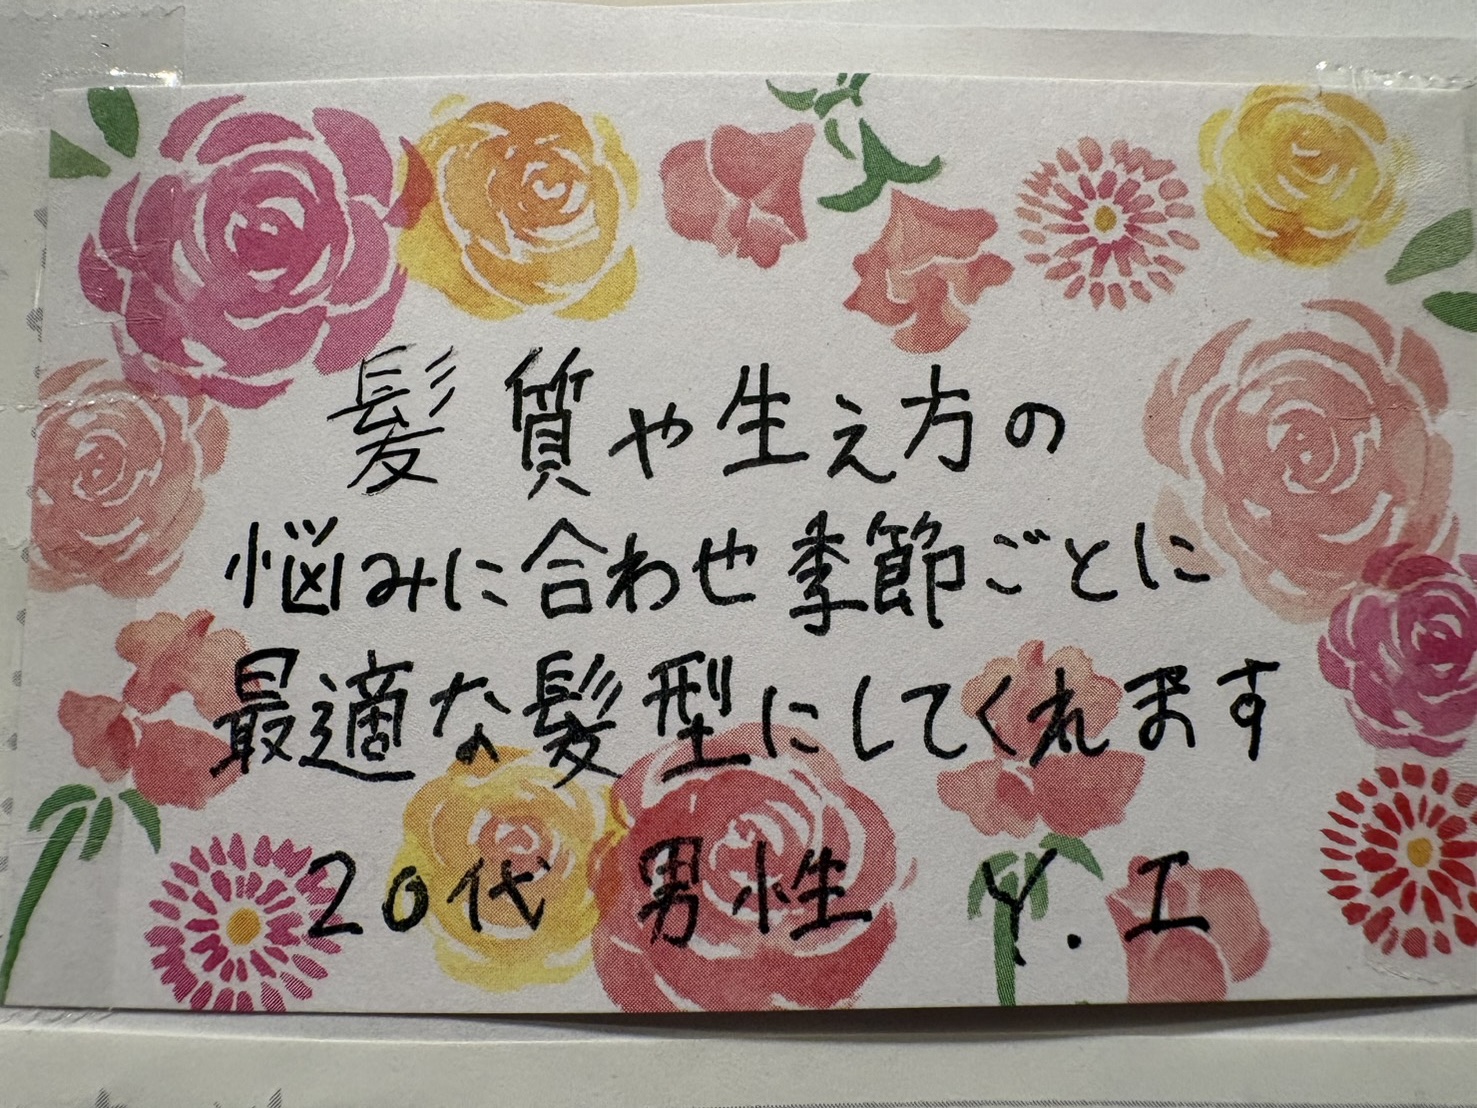 髪質や生え方の
悩みに合わせ季節ごとに
最適な髪型にしてくれます
20代 男性 Y.I